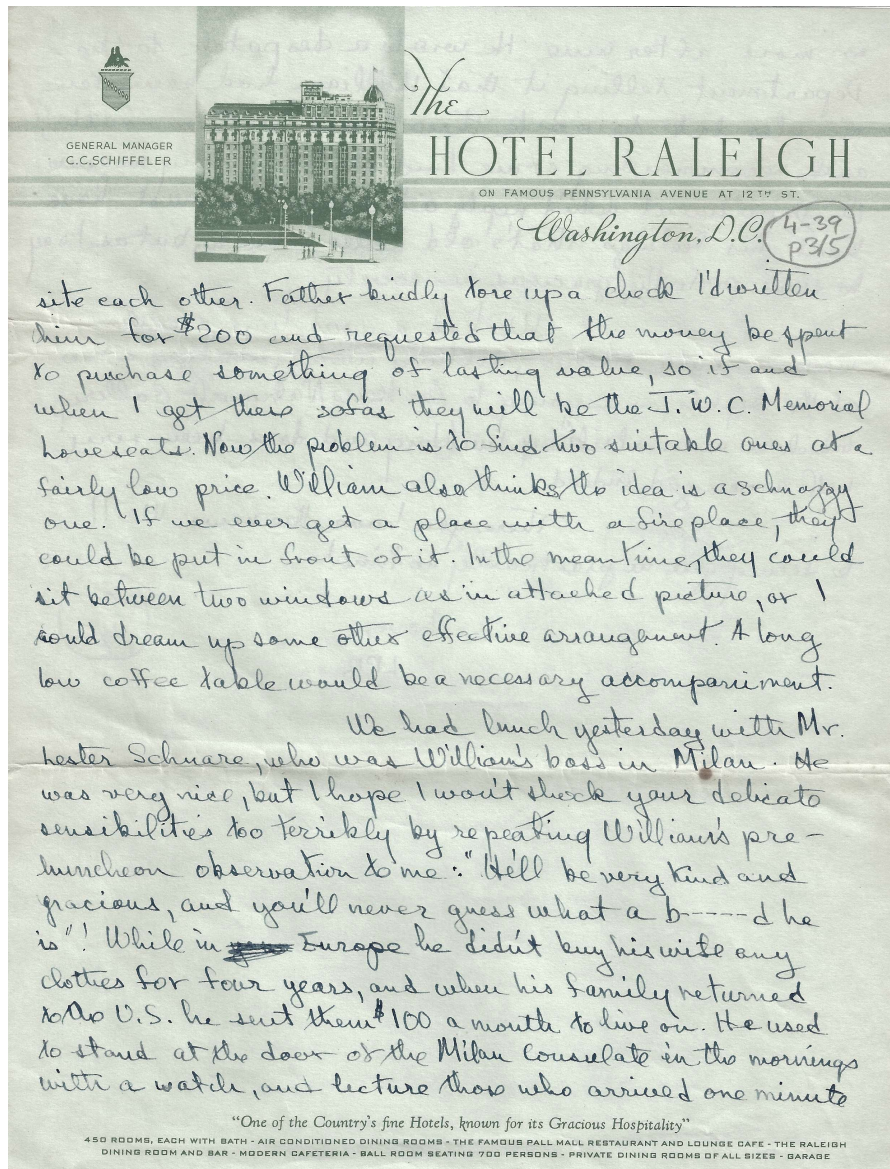 GENERAL MANAGER
C.C.SCHIFFELER
The
HOTEL RALEIGH
ON FAMOUS PENNSYLVANIA AVENUE AT 12TH ST.
Washington, D.C.
4-39
p3/5
site each other. Father kindly tore up a check I'd written
him for $200 and requested that the money be spent
to purchase something of lasting value, so if and
when I get these sofas they will be the J. W. C. Memorial
Loveseats. Now the problem is to find two suitable ones at a
fairly low price. William also thinks the idea is a schnazzy
one. If we ever get a place with a fireplace, they
could be put in front of it. In the meantime, they could
sit between two windows as in attached picture, or I
could dream up some other effective arrangement. A long
low coffee table would be a necessary accompaniment.
We had lunch yesterday with Mr.
Lester Schnare, who was William's boss in Milan. He
was very nice, but I hope I won't shock your delicate
sensibilities too terribly by repeating William's pre-
luncheon observation to me: "He'll be very kind and
gracious, and you'll never guess what a b-----d he
is"! While in Europe he didn't buy his wife any
clothes for four years, and when his family returned
to the U.S. he sent them $100 a month to live on. He used
to stand at the door of the Milan Consulate in the mornings
with a watch, and lecture those who arrived one minute
"One of the Country's fine Hotels, known for its Gracious Hospitality"
450 ROOMS, EACH WITH BATH - AIR CONDITIONED DINING ROOMS - THE FAMOUS PALL MALL RESTAURANT AND LOUNGE CAFE - THE RALEIGH
DINING ROOM AND BAR - MODERN CAFETERIA - BALL ROOM SEATING 700 PERSONS - PRIVATE DINING ROOMS OF ALL SIZES - GARAGE